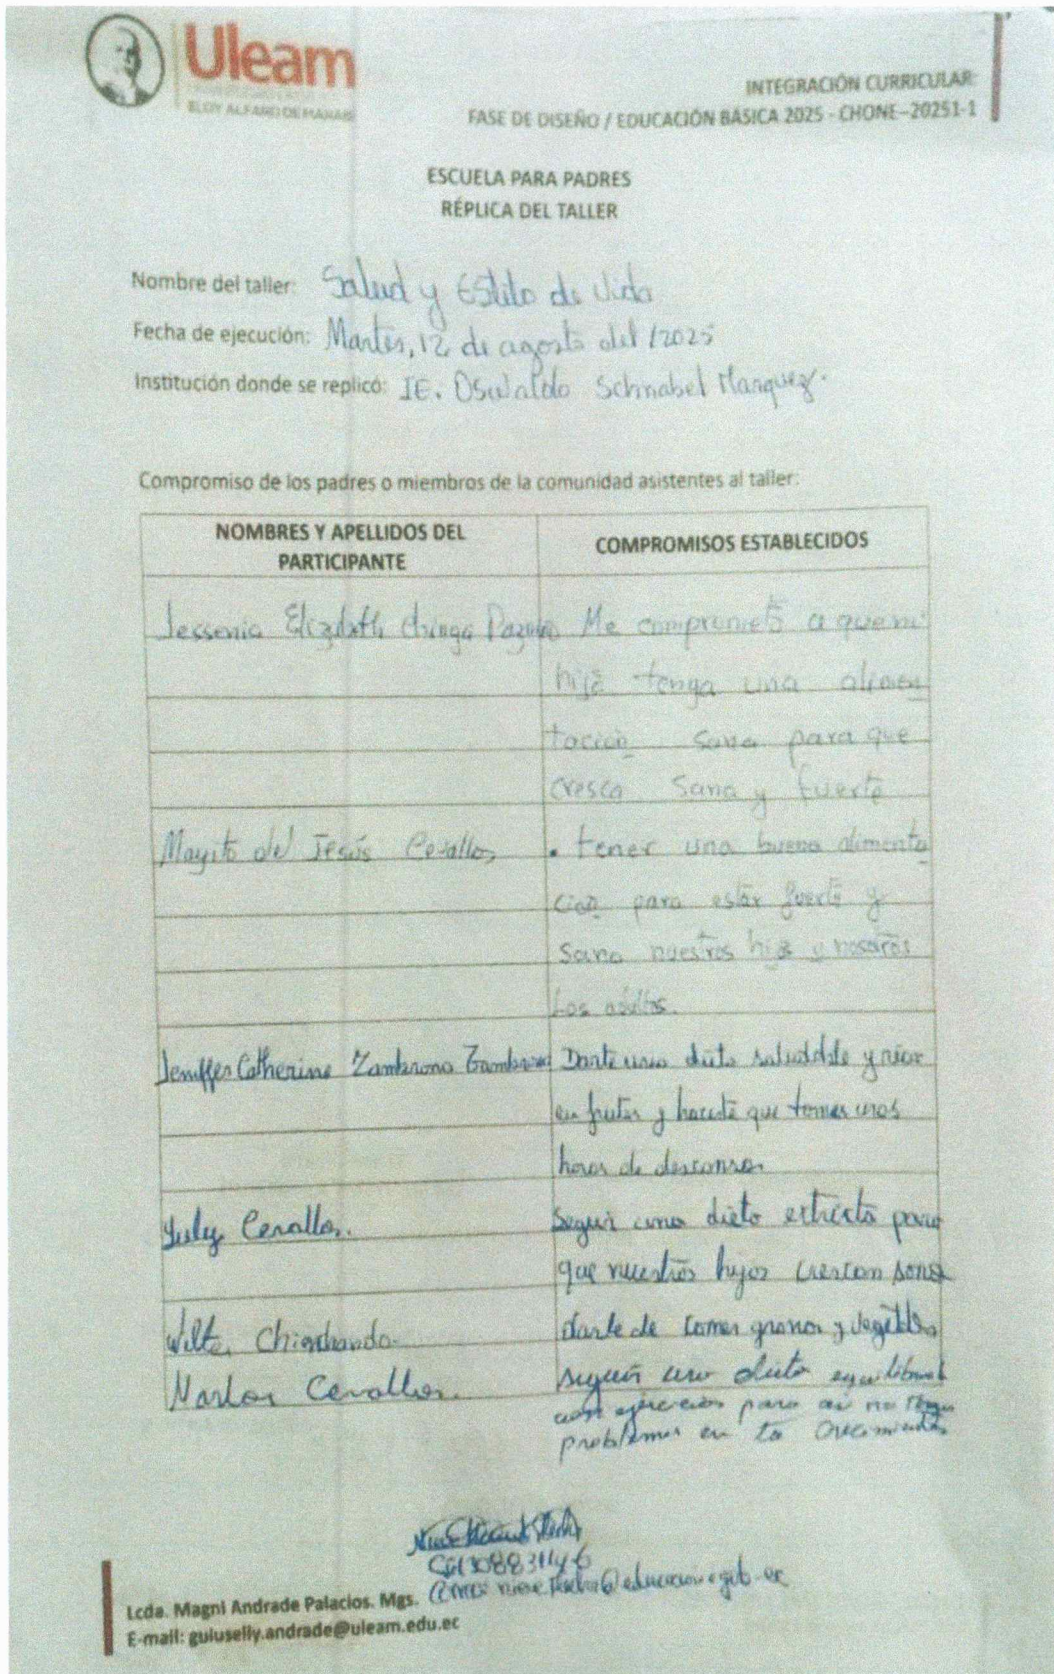 Uleam
ELOY ALFARO DE MANABÍ
INTEGRACIÓN CURRICULAR
FASE DE DISEÑO / EDUCACIÓN BÁSICA 2025 - CHONE–20251-1
ESCUELA PARA PADRES
RÉPLICA DEL TALLER
Nombre del taller: Salud y Estilo de vida
Fecha de ejecución: Martes, 12 de agosto del /2025
Institución donde se replicó: IE. Oswaldo Schnabel Marquez.
Compromiso de los padres o miembros de la comunidad asistentes al taller:
NOMBRES Y APELLIDOS DEL PARTICIPANTE
COMPROMISOS ESTABLECIDOS
Jessenia Elizabeth Me comprometo a que mi
hija tenga una alimen
tación sana para que
cresca sana y fuerte
Mayito del Jesús Cevallos . tener una buena alimenta
cion para estar fuerte y
sano nuestros hijos y nosotros
los adultos.
Jeniffer Catherine Zambrano Zambrano Darle una dieta saludable y rica
en frutas y hacerle que tomen unas
horas de descanso
July Cevallos. Seguir una dieta estricta para
que nuestros hijos crescan sano
darle de comer granos y vegetales
Marlon Cevallos. seguir una dieta equilibrada
con ejercicios para asi no tenga
problemas en to crecimiento
Lcda. Magni Andrade Palacios. Mgs.
E-mail: guiuselly.andrade@uleam.edu.ec